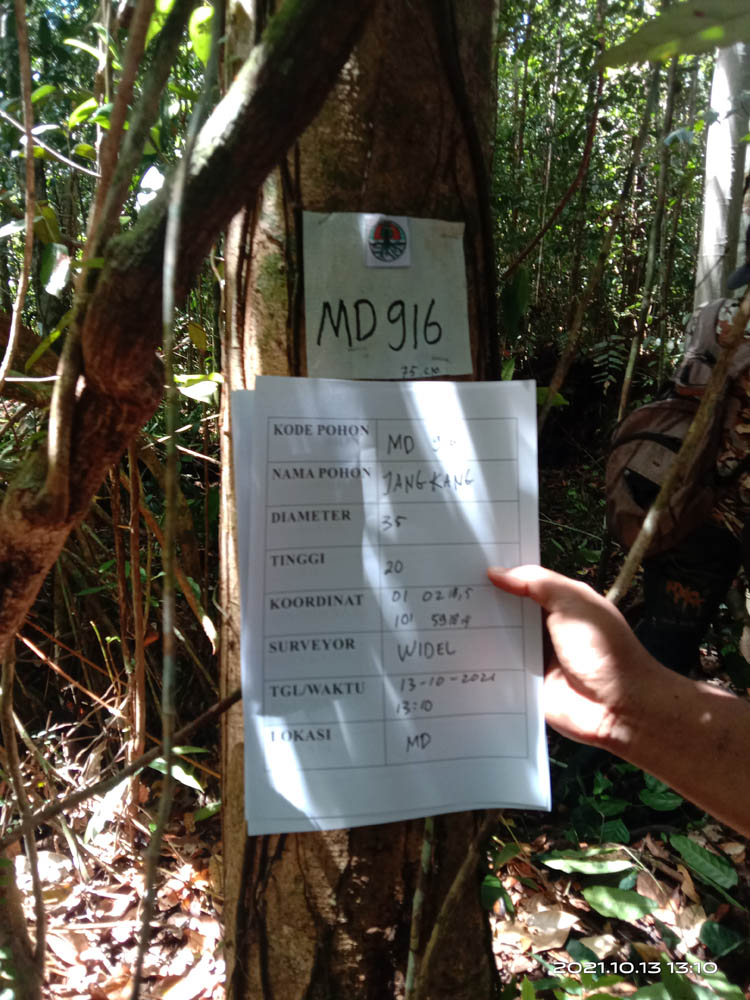 MD 916
75 cm
KODE POHON MD 916
NAMA POHON JANGKANG
DIAMETER 35
TINGGI 20
KOORDINAT 01 02 18,5
101 59 18,9
SURVEYOR WIDEL
TGL/WAKTU 13-10-2021
13:10
LOKASI MD
2021.10.13 13:10